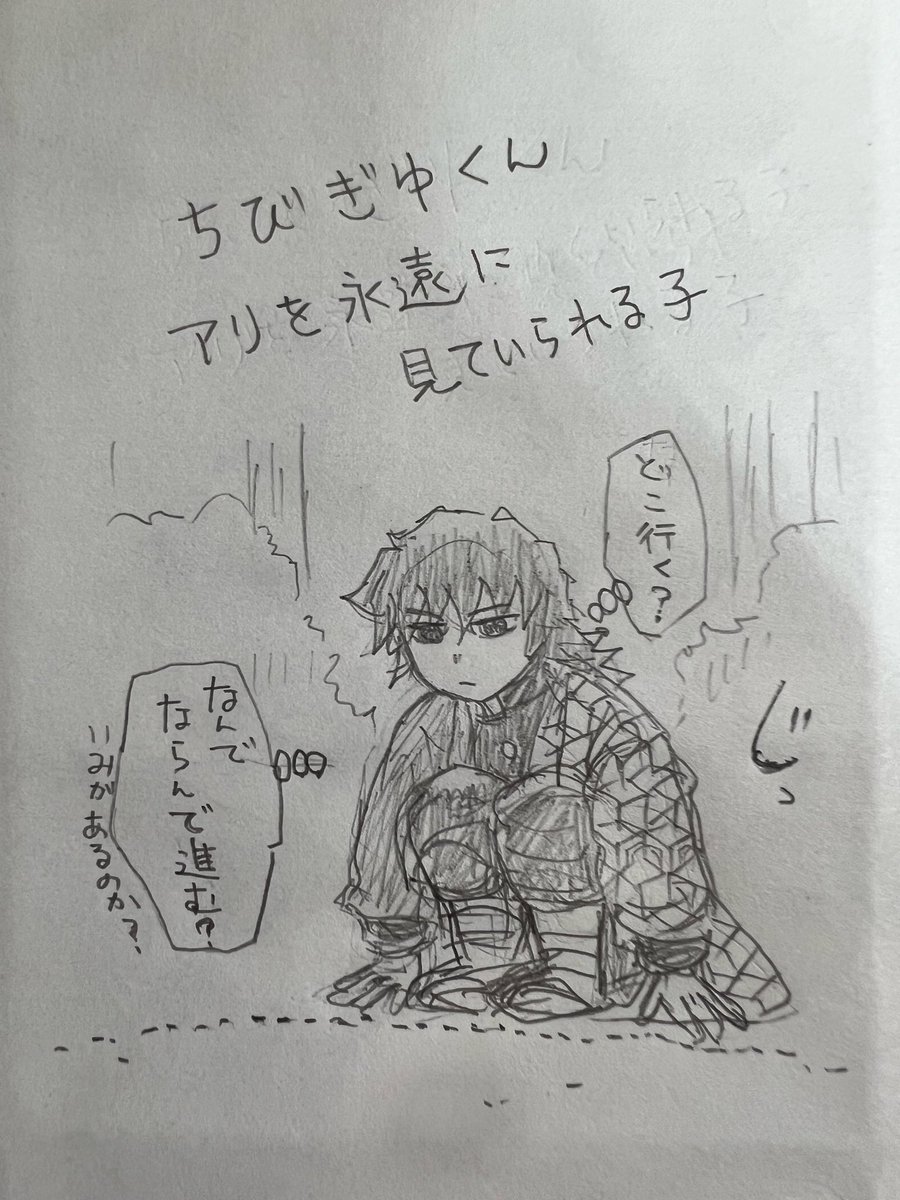 ちびぎゆくん
アリを永遠に
見ていられる子
どこ行く?
なんで
ならんで進む?
いみがあるのか?
じっ